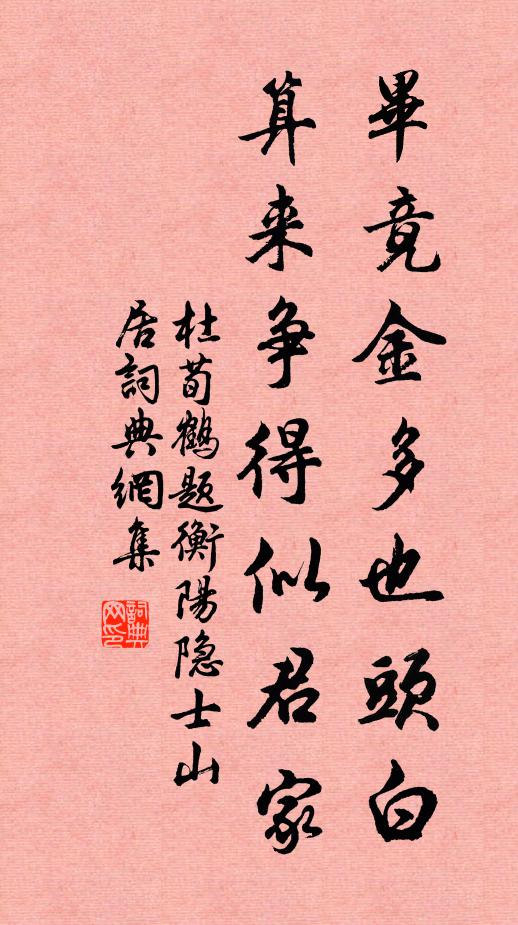 畢竟金多也頭白
算来爭得似君家
杜荀鶴題衡陽隐士山
居詞典網集
詞典網印